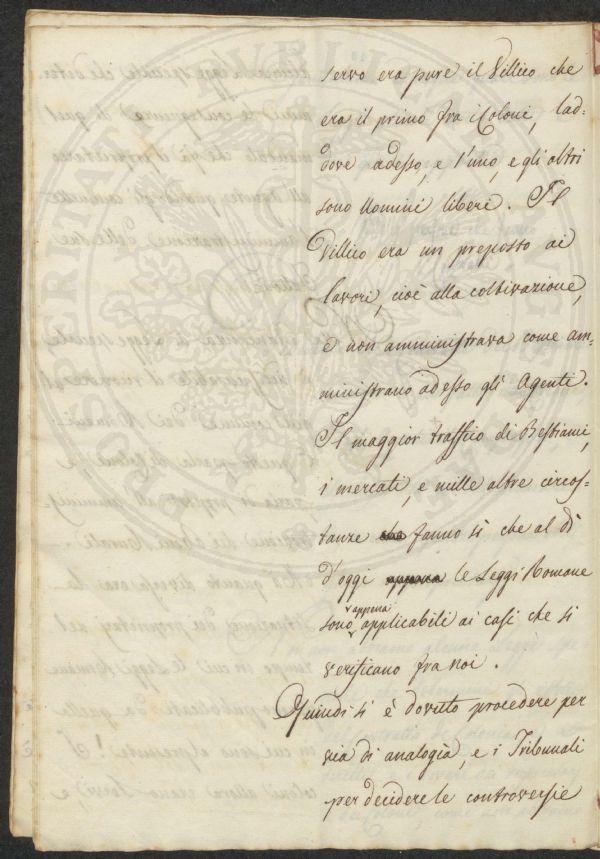 servo era pure il Villico che
era il primo fra i Coloni, lad-
dove adesso, e l'uno, e gli altri
sono Uomini liberi. Il
Villico era un preposto ai
lavori, cioè alla coltivazione,
e non amministrava come am-
ministrano adesso gli Agenti.
Il maggior traffico di Bestiami,
i mercati, e mille altre circos-
tanze fanno sì che al dì
d'oggi appena le Leggi Romane
sono appena applicabili ai casi che si
verificano fra noi.
Quindi si è dovuto procedere per
via di analogia, e i Tribunali
per decidere le controversie